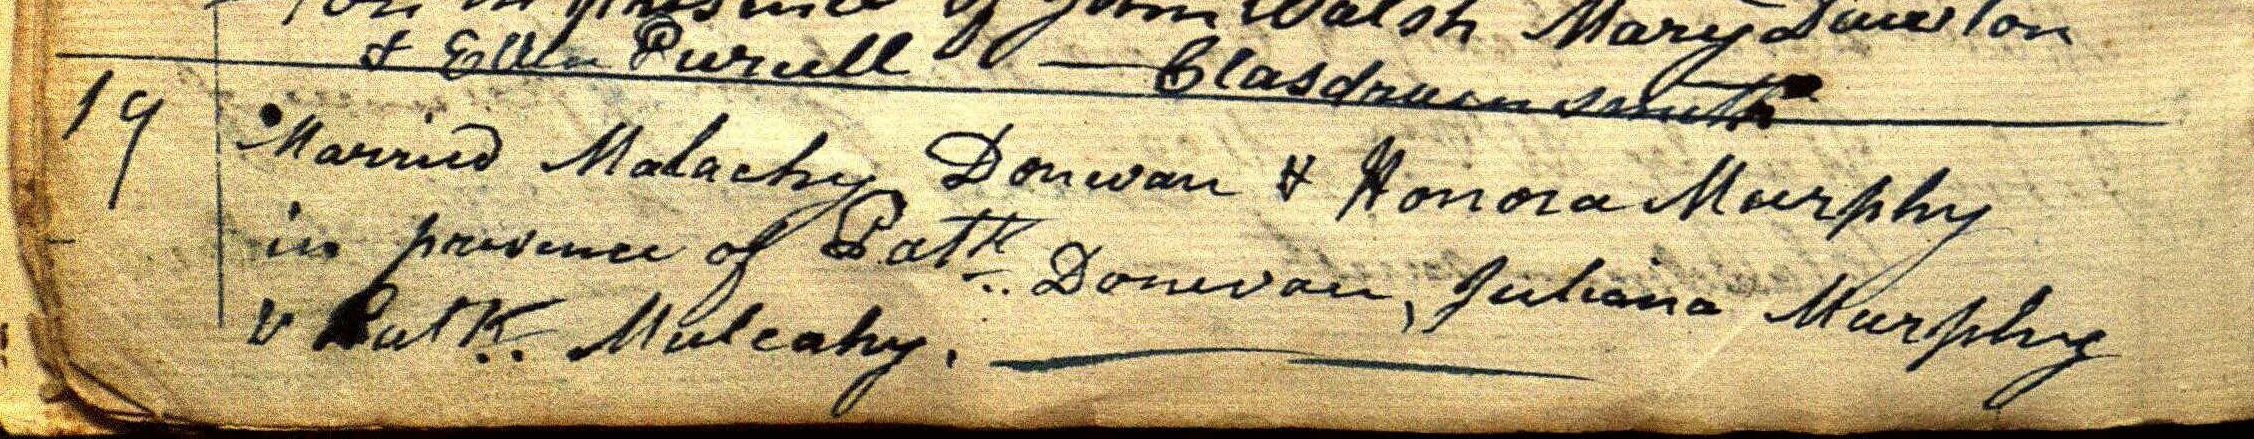 in presence of John Walsh Mary
& Ellen Purcell —
19 Married Malachy Donevan & Honora Murphy
in presence of Patk. Donevan, Juliana Murphy
& Patk. Mulcahy. —